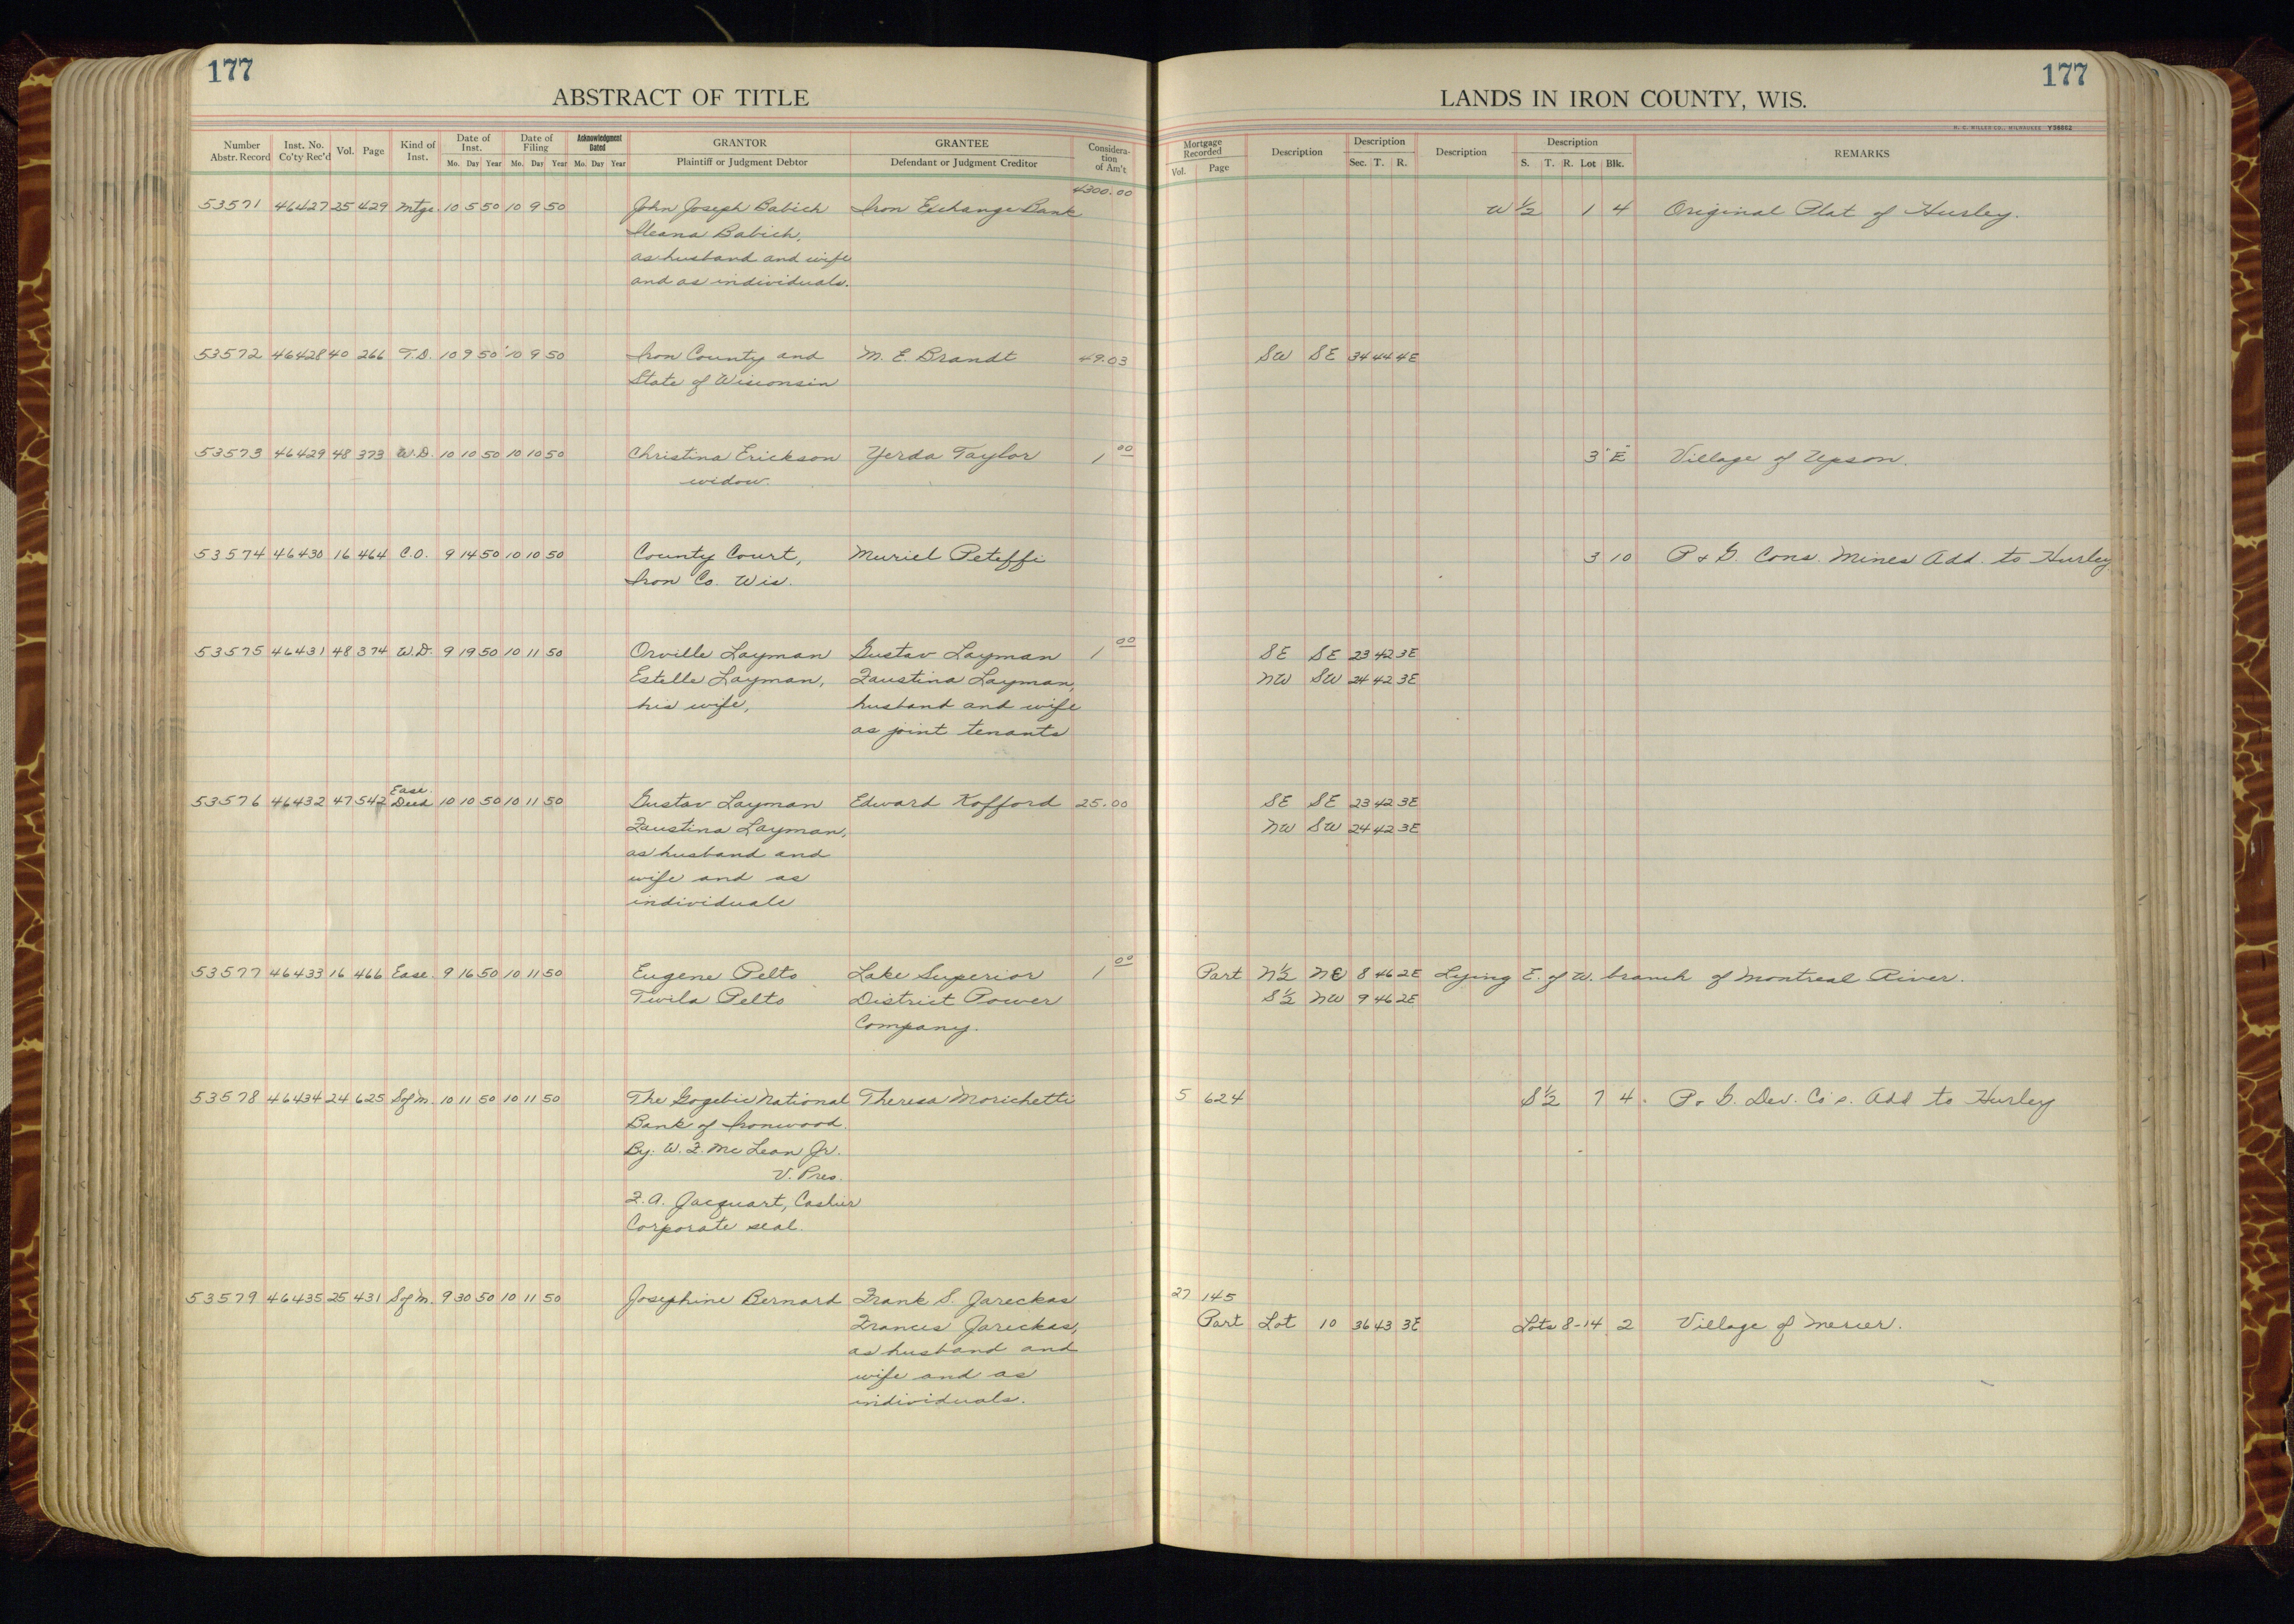 177
177
ABSTRACT OF TITLE
LANDS IN IRON COUNTY, WIS.
H. C. MILLER CO., MILWAUKEE Y38862
Number Abstr. Record Inst. No. Co'ty Rec'd Vol. Page Kind of Inst. Date of Inst. Mo. Day Year Date of Filing Mo. Day Year Acknowledgment Dated Mo. Day Year GRANTOR Plaintiff or Judgment Debtor GRANTEE Defendant or Judgment Creditor Considera-tion of Am't
Mortgage Recorded Vol. Page Description Description Sec. T. R. Description Description S. T. R. Lot Blk. REMARKS
4300.00
53571 46427 25 429 Mtge. 10 5 50 10 9 50 John Joseph Babich Iron Exchange Bank W ½ 1 4 Original Plat of Hurley.
Ileana Babich,
as husband and wife
and as individuals.
53572 46428 40 266 T.D. 10 9 50 10 9 50 Iron County and M. E. Brandt 49.03 SW SE 34 44 4E
State of Wisconsin
53573 46429 48 373 W.D. 10 10 50 10 10 50 Christina Erickson Yerda Taylor 1 00 3 E Village of Upson.
widow.
53574 46430 16 464 C.O. 9 14 50 10 10 50 County Court, Muriel Peteffi 3 10 P & G. Cons. Mines Add. to Hurley
Iron Co. Wis.
53575 46431 48 374 W.D. 9 19 50 10 11 50 Orville Layman Gustav Layman 1 00 SE SE 23 42 3E
Estelle Layman, Faustina Layman, NW SW 24 42 3E
his wife, husband and wife
as joint tenants
53576 46432 47 542 Ease. Deed 10 10 50 10 11 50 Gustav Layman Edward Kofford 25.00 SE SE 23 42 3E
Faustina Layman, NW SW 24 42 3E
as husband and
wife and as
individuals
53577 46433 16 466 Ease. 9 16 50 10 11 50 Eugene Pelto Lake Superior 1 00 Part N½ NE 8 46 2E Lying E. of W. branch of Montreal River.
Twila Pelto District Power S½ NW 9 46 2E
Company.
53578 46434 24 625 S of M. 10 11 50 10 11 50 The Gogebic National Theresa Morichetti 5 624 S½ 7 4 P. & G. Dev. Co's. Add to Hurley
Bank of Ironwood.
By. W. F. McLean Jr.
V. Pres.
F. A. Jacquart, Cashier
Corporate seal.
53579 46435 25 431 S of M. 9 30 50 10 11 50 Josephine Bernard Frank S. Jareckas 27 145
Frances Jareckas, Part Lot 10 36 43 3E Lots 8-14 2 Village of Mercer.
as husband and
wife and as
individuals.